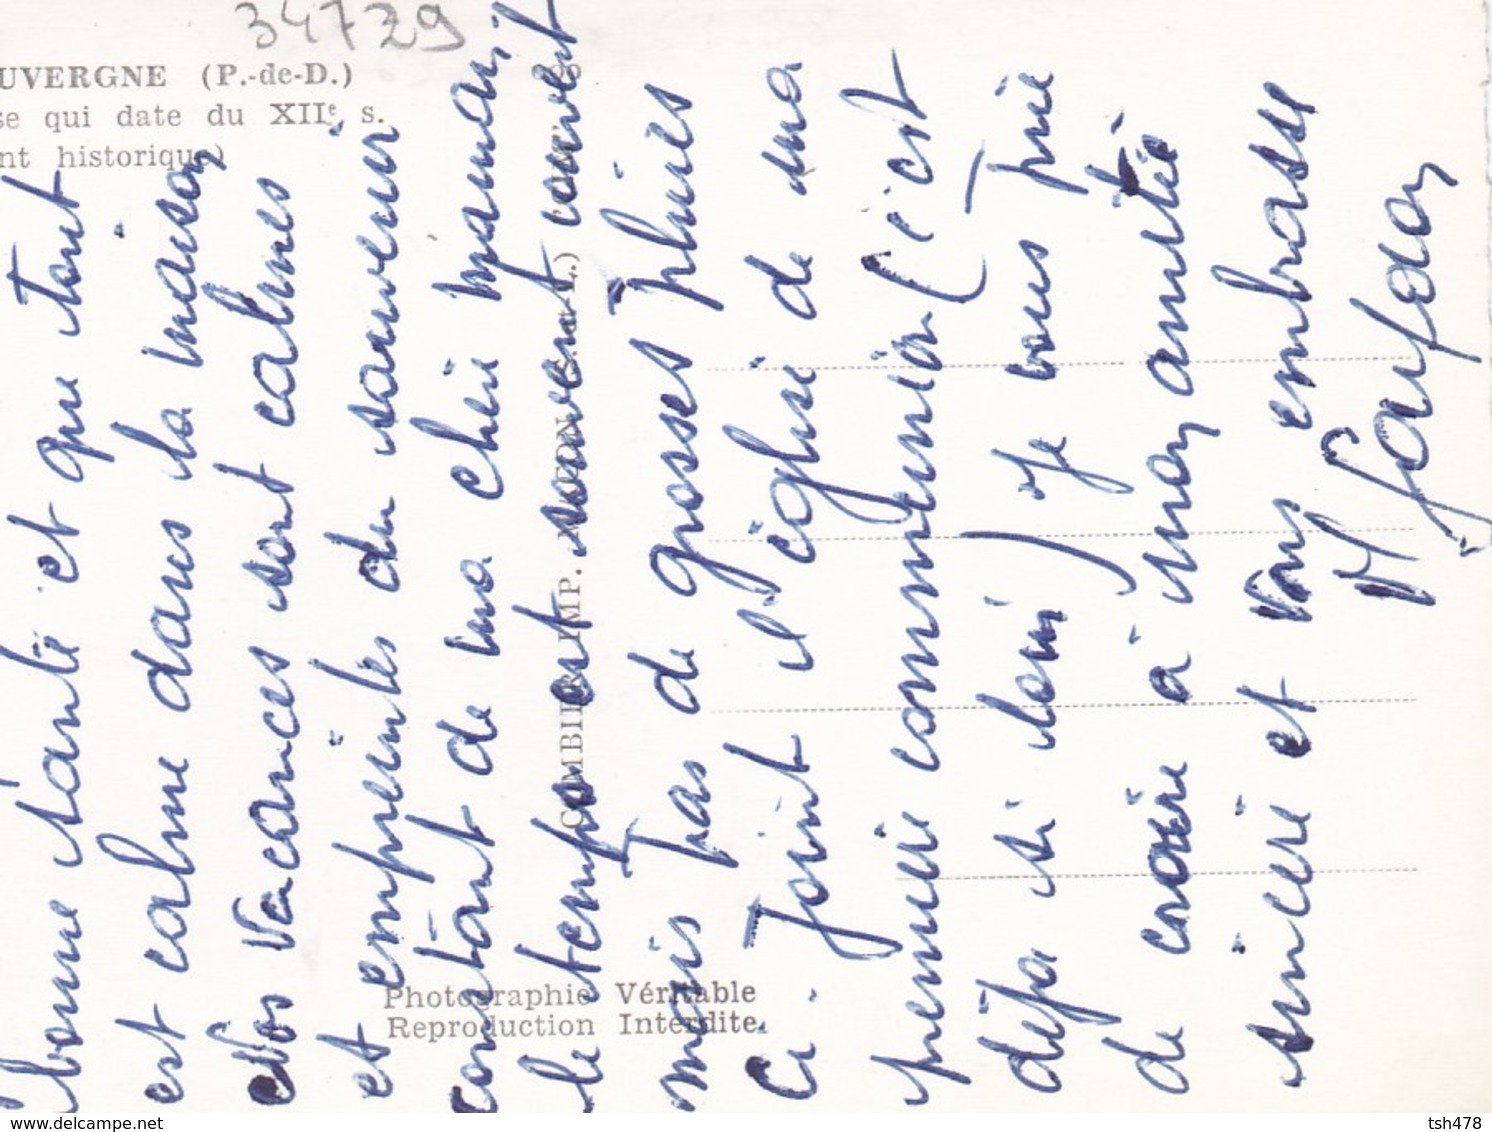 34729
UVERGNE (P.-de-D.)
se qui date du XIIe s.
nt historique)
bonne santé et que tout
est calme dans la maison
Nos vacances sont calmes
et empreintes du souvenir
constant de ma chère maman
le temps est souvent couvert
mais pas de grosses pluies
Ci-joint l'église de ma
première communion (c'est
déjà si loin) Je vous prie
de croire à mon amitié
sincère et vous embrasse
COMBIER IMP. MACON
Photographie Véritable
Reproduction Interdite.
www.delcampe.net
tsh478